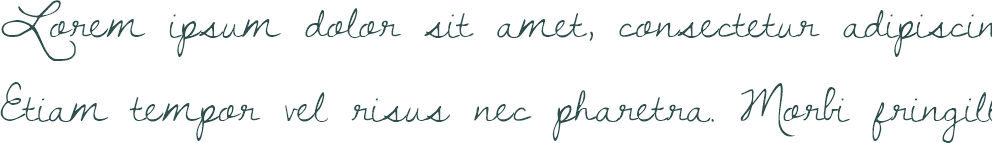 Lorem ipsum dolor sit amet, consectetur adipiscin
Etiam tempor vel risus nec pharetra. Morbi fringill